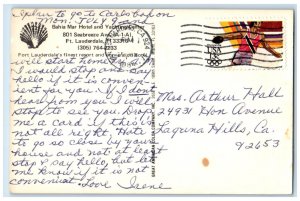 I plan to go to Carlsbad on
Mon. July 2 and
Bahia Mar Hotel and Yachting
801 Seabreeze Ave. (A-1-A)
Ft. Lauderdale, Fl 33316
(305) 764-2233
Fort Lauderdale's finest resort and
will start home
I would stop and say
hello if it is conven-
ient for you. If I don't
hear from you I will
stop to see you. Drop
me a card if this is
not all right. Hate
to go so close by your
house and not at least
stop & say hello, but let
me know if it is not
convenient. Love Irene
USA
Mrs. Arthur Hall
24931 Hon Avenue
Laguna Hills, Ca.
92653